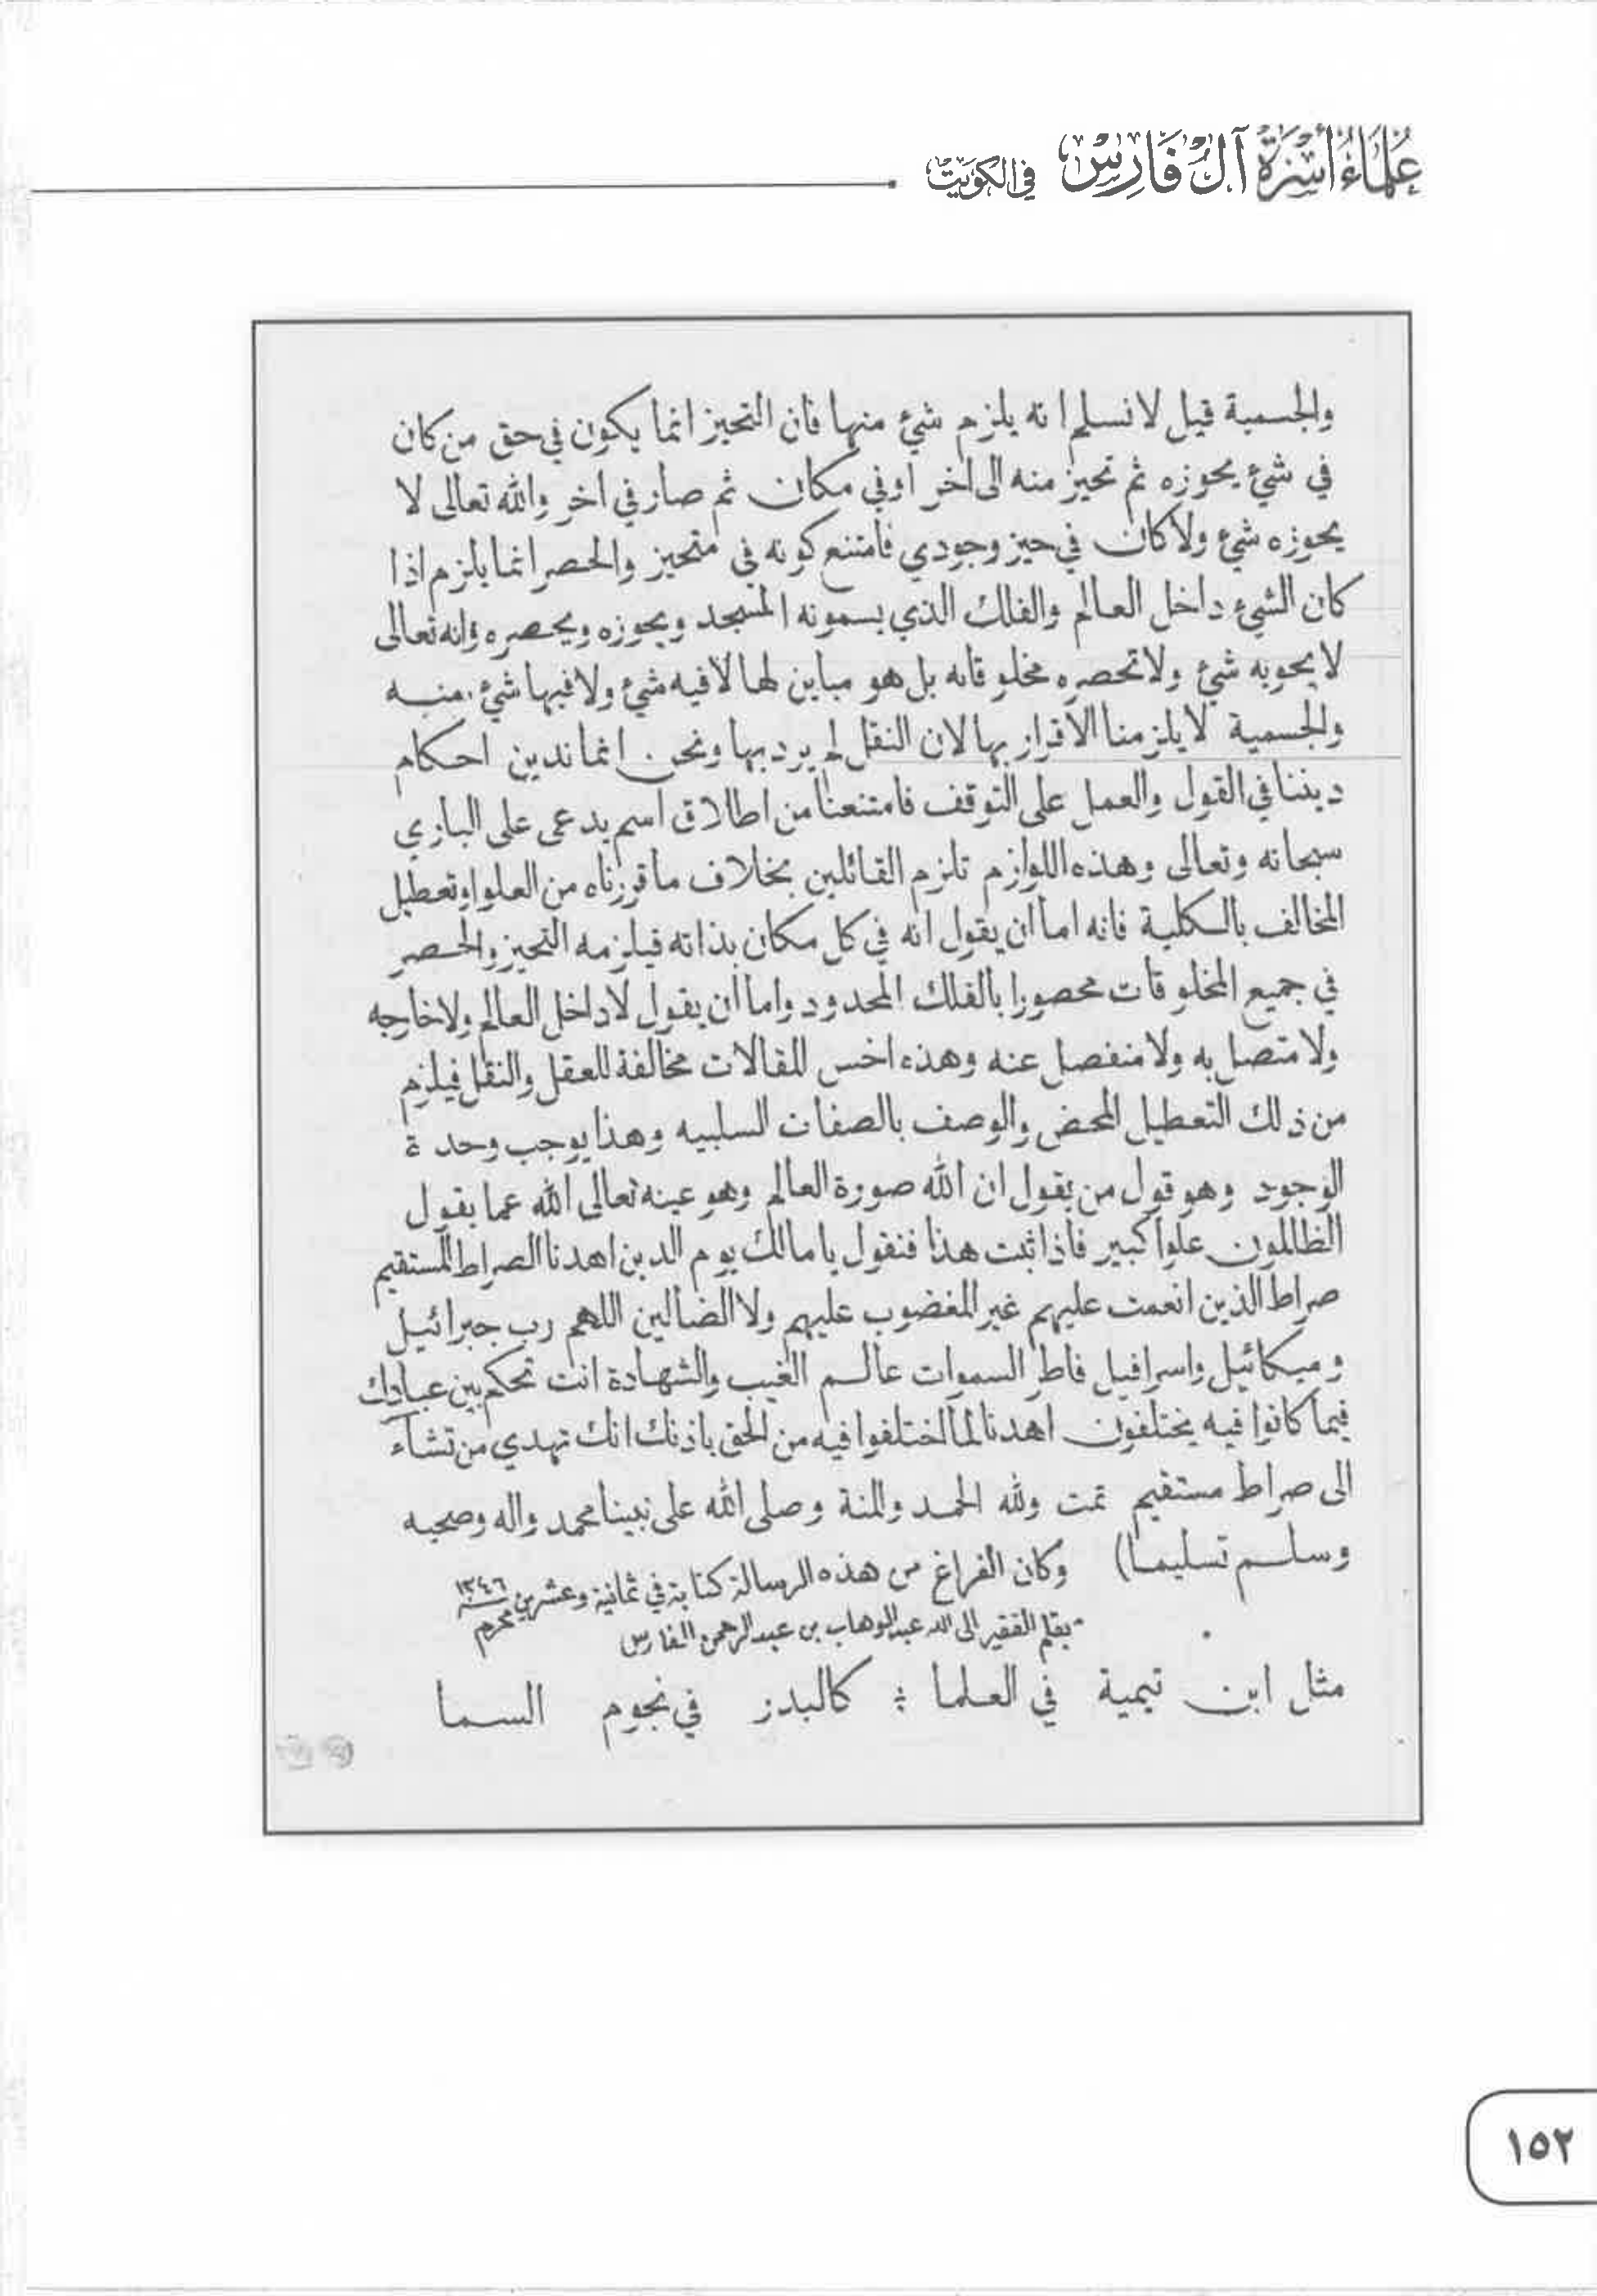 علماء أسرة آل فارس في الكويت
والجسمية قيل لا نسلم انه يلزم شيء منها فان التحيز انما يكون في حق من كان
في شيء يحوزه ثم تحيز منه الى اخر او في مكان ثم صار في اخر والله تعالى لا
يحوزه شيء ولا كان في حيز وجودي فامتنع كونه في متحيز والحصر انما يلزم اذا
كان الشيء داخل العالم والفلك الذي يسمونه المسجد ويحوزه ويحصره وانه تعالى
لا يحويه شيء ولا تحصره مخلوقاته بل هو مباين لها لا فيه شيء ولا فيها شيء منه
والجسمية لا يلزمنا الاقرار بها لان النقل لم يرد بها ونحن انما ندين احكام
ديننا في القول والعمل على التوقف فامتنعنا من اطلاق اسم يدعى على الباري
سبحانه وتعالى وهذه اللوازم تلزم القائلين بخلاف ما قررناه من العلو او تعطيل
المخالف بالكلية فانه اما ان يقول انه في كل مكان بذاته فيلزمه التحيز والحصر
في جميع المخلوقات محصورا بالفلك المحدود واما ان يقول لا داخل العالم ولا خارجه
ولا متصل به ولا منفصل عنه وهذه اخس المقالات مخالفة للعقل والنقل فيلزم
من ذلك التعطيل المحض والوصف بالصفات السلبيه وهذا يوجب وحدة
الوجود وهو قول من يقول ان الله صورة العالم وهو عينه تعالى الله عما يقول
الظالمون علوا كبير فاذا ثبت هذا فنقول يا مالك يوم الدين اهدنا الصراط المستقيم
صراط الذين انعمت عليهم غير المغضوب عليهم ولا الضالين اللهم رب جبرائيل
وميكائيل واسرافيل فاطر السموات عالم الغيب والشهادة انت تحكم بين عبادك
فيما كانوا فيه يختلفون اهدنا لما اختلفوا فيه من الحق باذنك انك تهدي من تشاء
الى صراط مستقيم تمت ولله الحمد والمنة وصلى الله على نبينا محمد واله وصحبه
وسلم تسليما) وكان الفراغ من هذه الرسالة كتابة في ثمانية وعشرين محرم سنة ١٣٤٦
بقلم الفقير الى الله عبد الوهاب بن عبد الرحمن الفارس
مثل ابن تيمية في العلما ⁘ كالبدر في نجوم السما
١٥٢